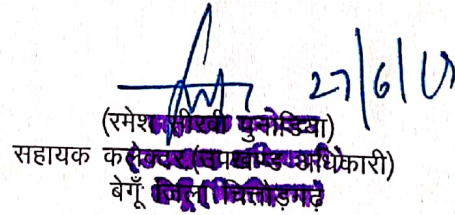 27/6/19
(रमेश सीरवी पुनोडिया)
सहायक कलेक्टर (उपखण्ड अधिकारी)
बेगूँ जिला चित्तौड़गढ़